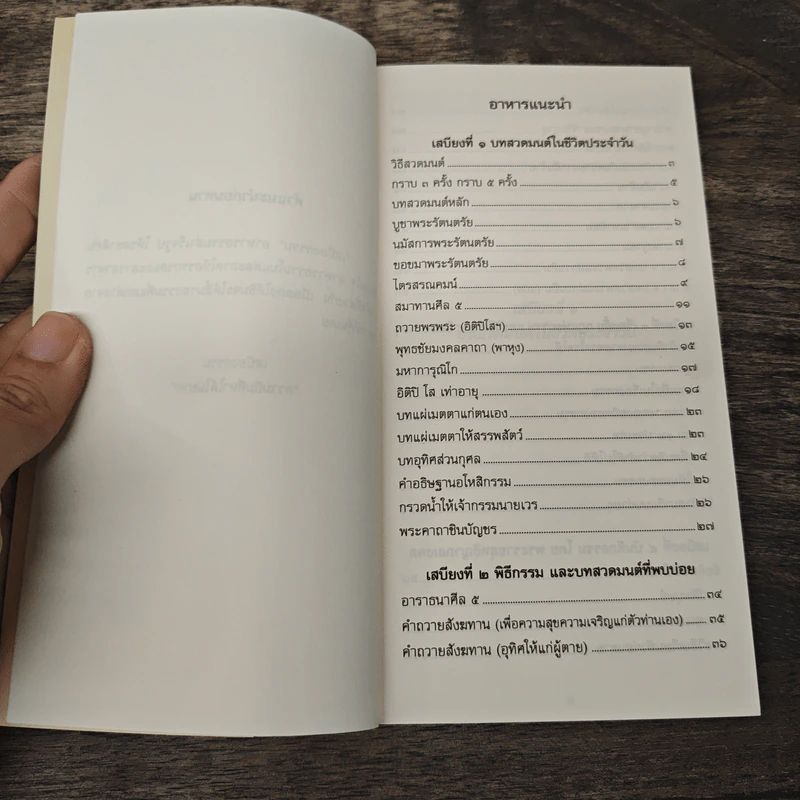 อาหารแนะนำ
เสบียงที่ ๑ บทสวดมนต์ในชีวิตประจำวัน
วิธีสวดมนต์ ๓
กราบ ๓ ครั้ง กราบ ๕ ครั้ง ๕
บทสวดมนต์หลัก ๖
บูชาพระรัตนตรัย ๖
นมัสการพระรัตนตรัย ๗
ขอขมาพระรัตนตรัย ๘
ไตรสรณคมน์ ๙
สมาทานศีล ๕ ๑๑
ถวายพรพระ (อิติปิโสฯ) ๑๓
พุทธชัยมงคลคาถา (พาหุง) ๑๕
มหาการุณิโก ๑๗
อิติปิ โส เท่าอายุ ๑๘
บทแผ่เมตตาแก่ตนเอง ๒๓
บทแผ่เมตตาให้สรรพสัตว์ ๒๓
บทอุทิศส่วนกุศล ๒๔
คำอธิษฐานอโหสิกรรม ๒๖
กรวดน้ำให้เจ้ากรรมนายเวร ๒๖
พระคาถาชินบัญชร ๒๗
เสบียงที่ ๒ พิธีกรรม และบทสวดมนต์ที่พบบ่อย
อาราธนาศีล ๕ ๓๔
คำถวายสังฆทาน (เพื่อความสุขความเจริญแก่ตัวท่านเอง) ๓๕
คำถวายสังฆทาน (อุทิศให้แก่ผู้ตาย) ๓๖